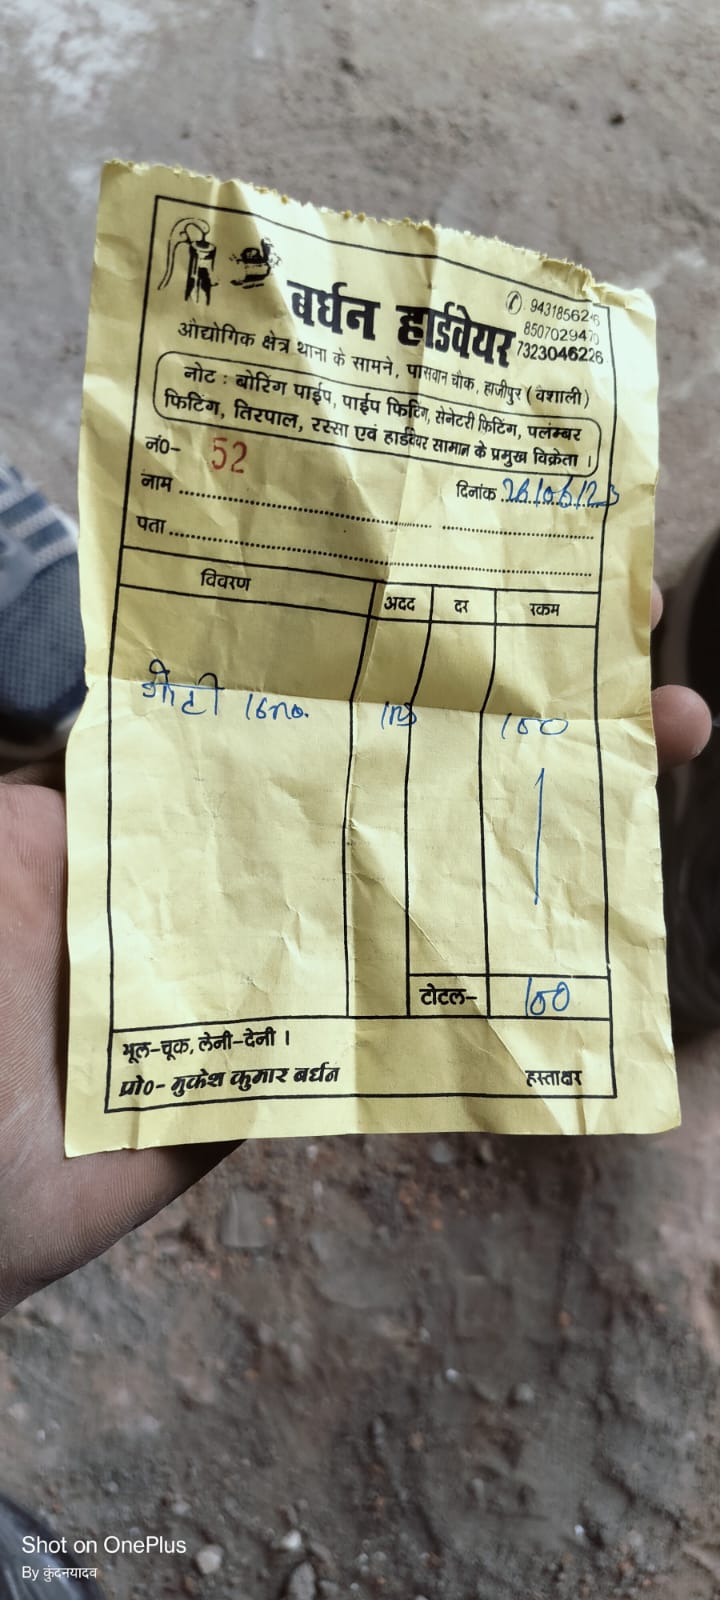 बर्धन हार्डवेयर
9431856246
8507029470
7323046226
औद्योगिक क्षेत्र थाना के सामने, पासवान चौक, हाजीपुर (वैशाली)
नोट : बोरिंग पाईप, पाईप फिटिंग, सेनेटरी फिटिंग, पलम्बर
फिटिंग, तिरपाल, रस्सा एवं हार्डवेयर सामान के प्रमुख विक्रेता ।
नं0- 52
नाम दिनांक 26/06/23
पता
विवरण अदद दर रकम
16no. 100
टोटल- 100
भूल-चूक, लेनी-देनी ।
प्रो0- मुकेश कुमार बर्धन हस्ताक्षर
Shot on OnePlus
By कुंदनयादव